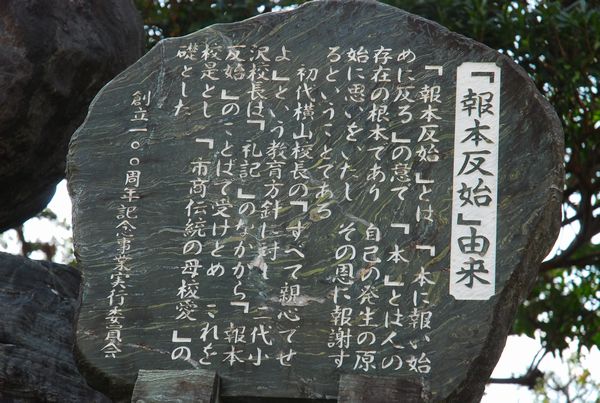 「報本反始」由来
「報本反始」とは「本に報い始
めに反る」の意で「本」とは人の
存在の根本であり 自己の発生の原
始に思いをいたし その恩に報謝す
るということである
初代横山校長の「すべて親心でせ
よ」という教育方針に対し 二代小
沢校長は「礼記」のなかから「報本
反始」のことばで受けとめ これを
校是とし「市商伝統の母校愛」の
礎とした
創立一〇〇周年記念事業実行委員会